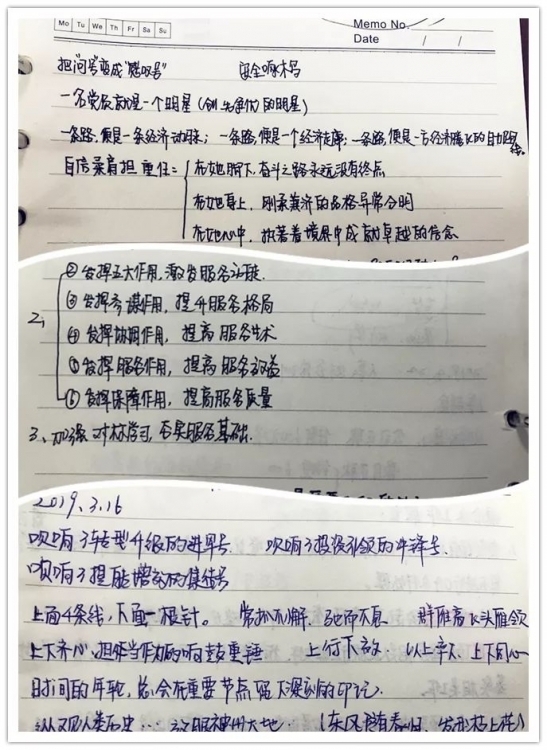 Mo Tu We Th Fr Sa Su
Memo No.
Date / /
把"问号"变成"感叹号" 安全啄木鸟
一名党员就是一个明星（创先争优的明星）
一条路，便是一条经济动脉；一条路，便是一个经济走廊；一条路，便是一方经济腾飞的自力
自信柔肩担重任：在她脚下，奋斗之路永远没有终点
在她身上，刚柔兼济的品格异常分明
在她心中，执著着境界中成就卓越的信念
2、
② 发挥五大作用，激发服务
③ 发挥参谋作用，提升服务格局
④ 发挥协调作用，提高服务艺术
① 发挥服务作用，提高服务效益
⑤ 发挥保障作用，提高服务质量
3、加强对标学习，夯实服务基础.
2019.3.16
吹响了转型升级的进军号 吹响了投资引领的冲锋号
吹响了提质增效的集结号
上面4条线，下面一根针。 常抓不懈，驰而不息 群雁高飞头雁领
上下齐心，担当作为的响鼓重锤 上行下效 以上率下，上下同心
时间的年轮，总会在重要节点留下深刻的印记.
纵观人类历史… 神州大地 （东风随春归，发我枝上花）